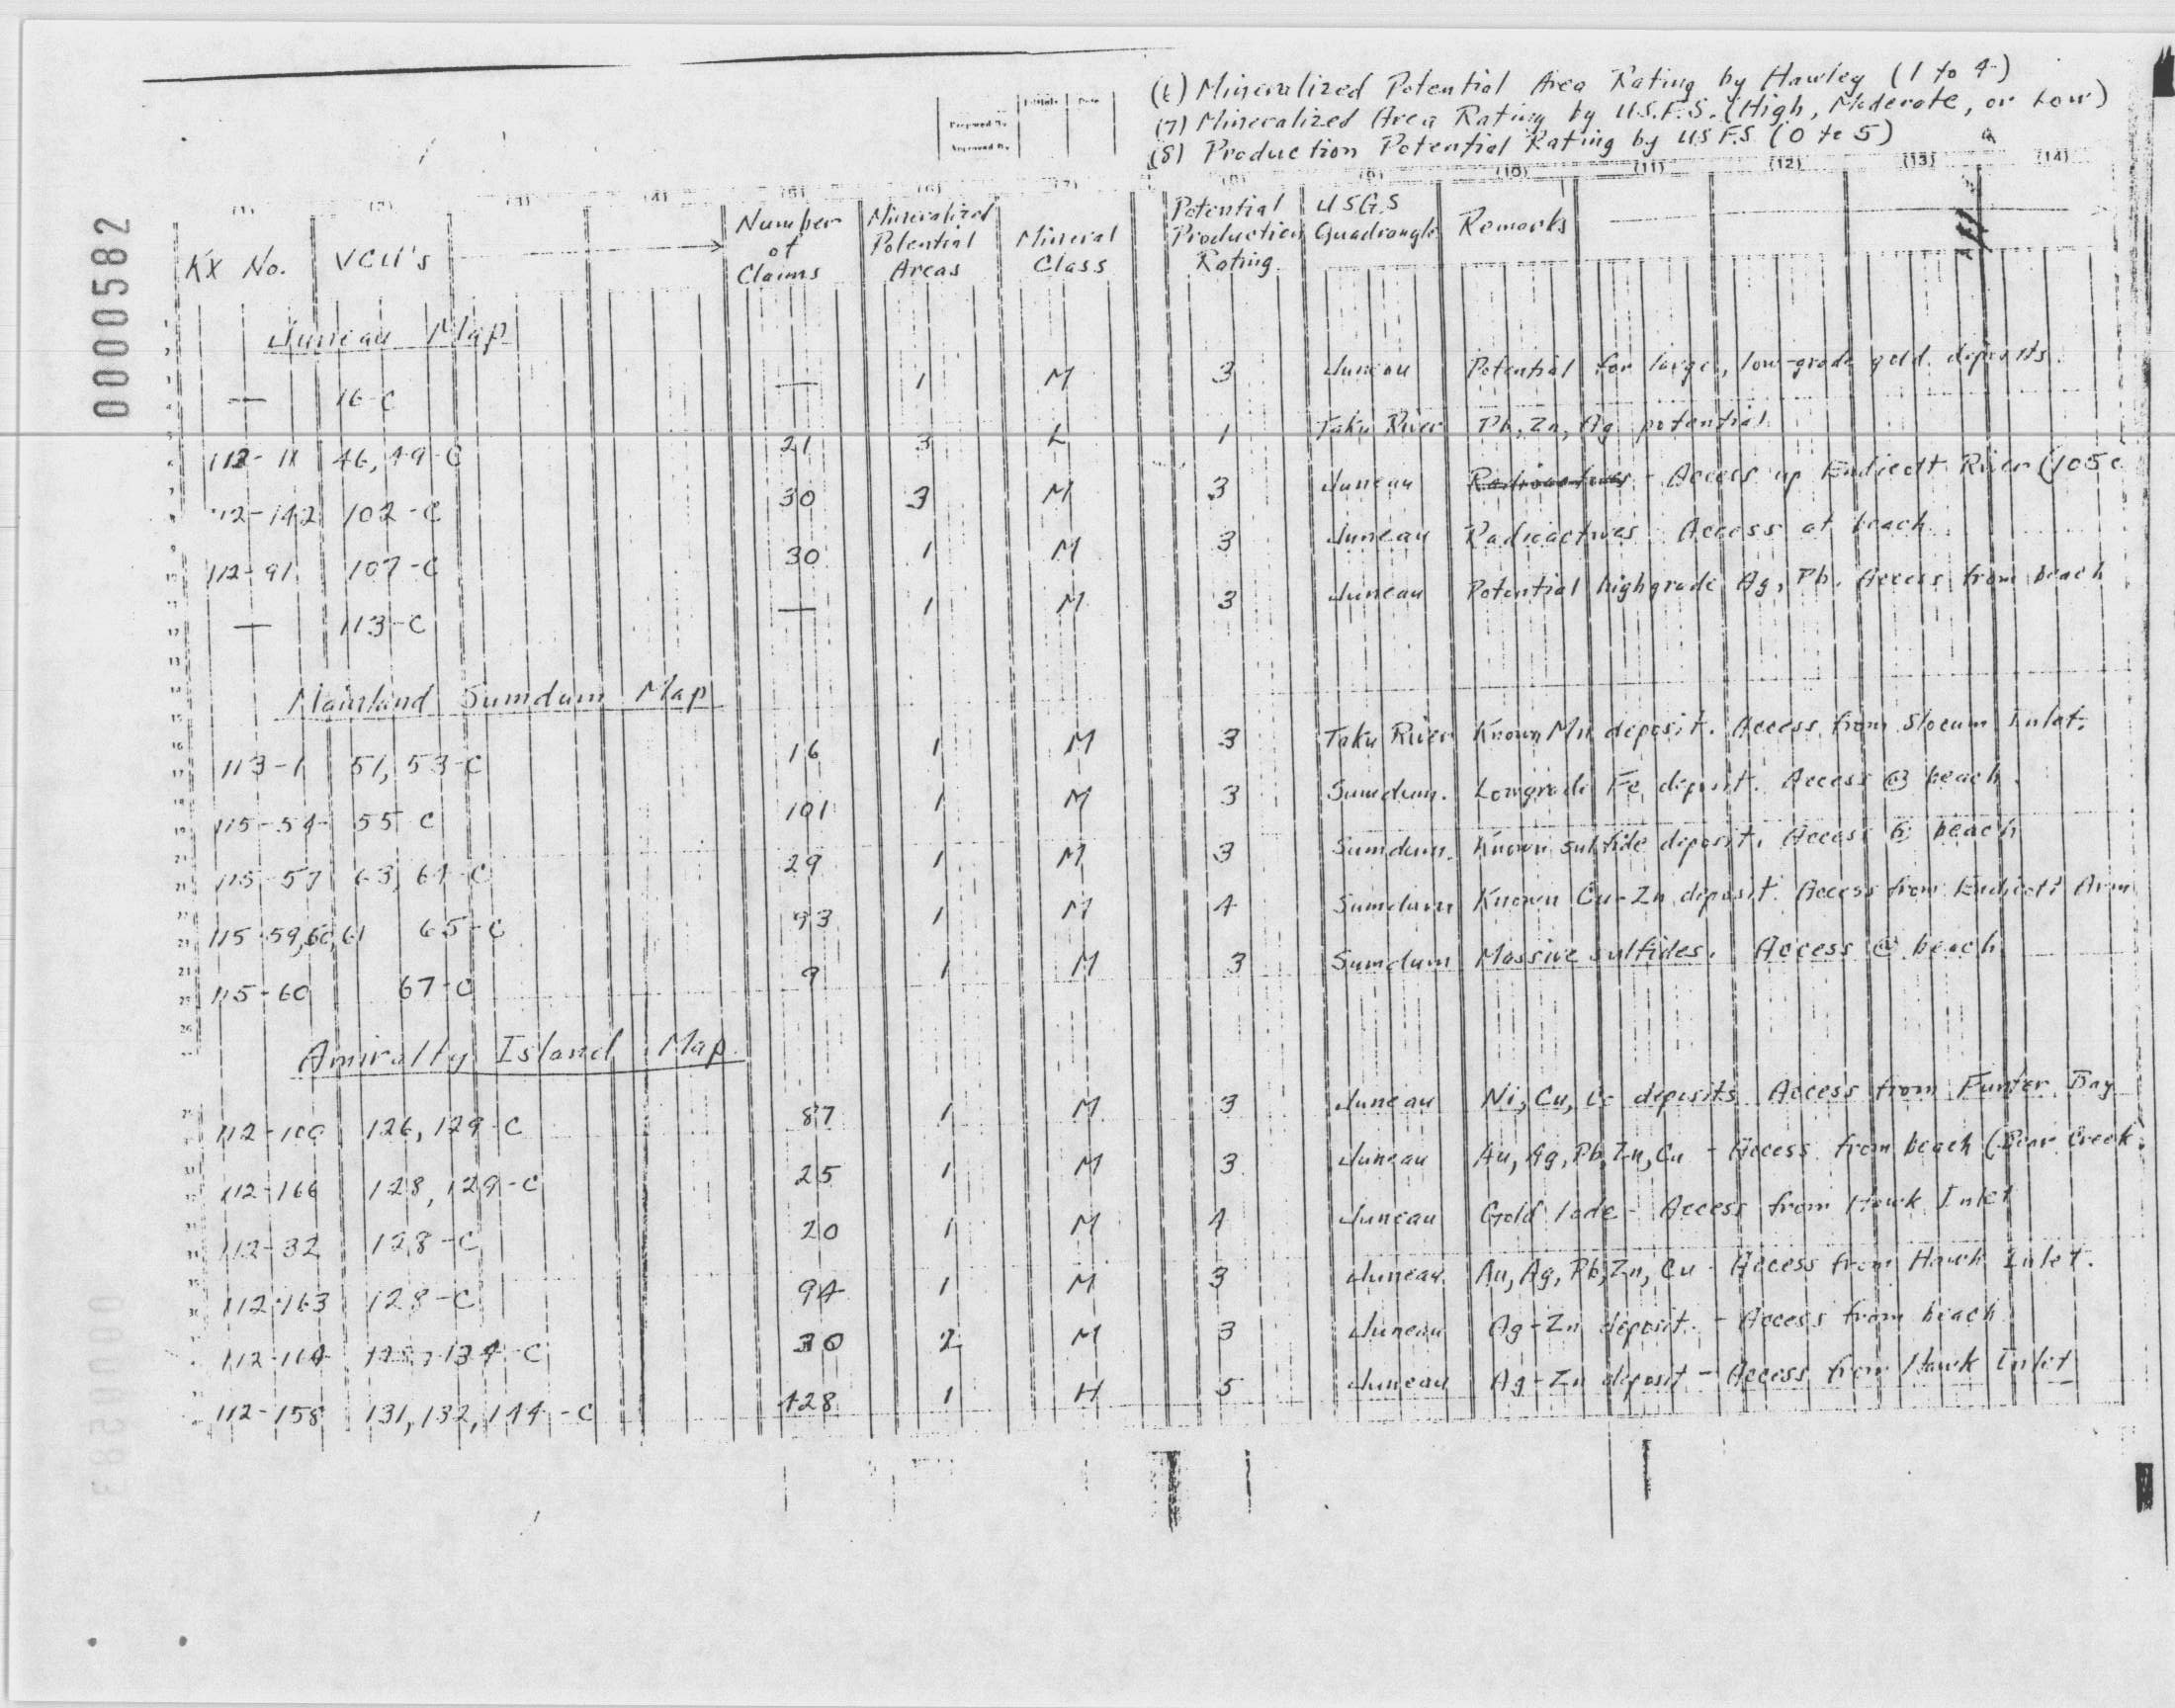 (6) Mineralized Potential Area Rating by Hawley (1 to 4)
(7) Mineralized Area Rating by U.S.F.S. (High, Moderate, or Low)
(8) Production Potential Rating by USFS (0 to 5)
Initials Date
Prepared By
Approved By
(1) (2) (3) (4) (5) (6) (7) (8) (9) (10) (11) (12) (13) (14)
KX No. VCU's Number of Claims Mineralized Potential Areas Mineral Class Potential Production Rating USGS Quadrangle Remarks
0000582
Juneau Map
— 16-C — 1 M 3 Juneau Potential for large, low-grade gold deposits.
112-11 46, 49-C 21 3 L 1 Taku River Pb, Zn, Ag potential
112-142 102-C 30 3 M 3 Juneau Radioactives - Access up Endicott River (105c
112-91 107-C 30 1 M 3 Juneau Radioactives Access at beach
— 113-C — 1 M 3 Juneau Potential highgrade Ag, Pb. Access from beach
Mainland Sumdum Map
113-1 51, 53-C 16 1 M 3 Taku River Known Mn deposit. Access from Slocum Inlet.
115-54 55-C 101 1 M 3 Sumdum. Lowgrade Fe deposit. Access @ beach.
115-57 63, 64-C 29 1 M 3 Sumdum. Known sulfide deposit. Access @ beach
115-59,60,61 65-C 93 1 M 4 Sumdum Known Cu-Zn deposit. Access from Endicott Arm
115-60 67-C 9 1 M 3 Sumdum Massive sulfides. Access @ beach
Amiralty Island Map
112-100 126, 129-C 87 1 M 3 Juneau Ni, Cu, Co deposits Access from Funter Bay
112-166 128, 129-C 25 1 M 3 Juneau Au, Ag, Pb, Zn, Cu - Access from beach (Bear Creek
112-32 128-C 20 1 M 4 Juneau Gold lode - Access from Hawk Inlet
112-163 128-C 94 1 M 3 Juneau Au, Ag, Pb, Zn, Cu - Access from Hawk Inlet.
112-164 134-C 30 2 M 3 Juneau Ag-Zn deposit. - Access from beach
112-158 131, 132, 144-C 428 1 H 5 Juneau Ag-Zn deposit - Access from Hawk Inlet